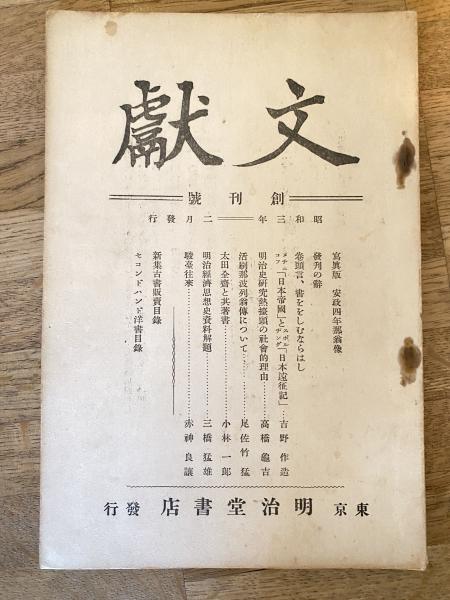 文獻
創刊號
昭和三年二月發行
寫眞版 安政四年部翁像
發刊の辭
卷頭言、書ををしむならはし
メチニコフ「日本帝國」とスポルヂング「日本遠征記」…吉野作造
明治史研究熱擡頭の社會的理由…………高橋龜吉
活刷那波列翁傳について…………尾佐竹猛
太田全齋と其著書…………小林一郎
明治經濟思想史資料解題…………三橋猛雄
駿臺往來…………赤神良讓
新集古書販賣目錄
セコンドハンド洋書目錄
東京 明治堂書店 發行